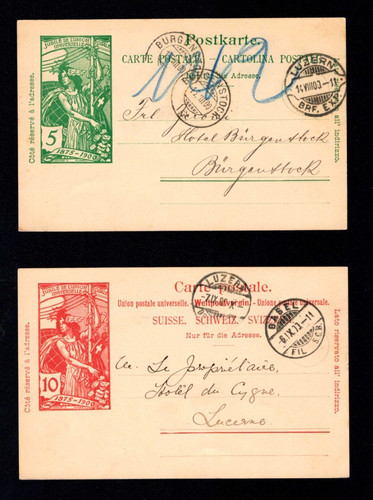 JUBILÉ DE L'UNION POSTALE UNIVERSELLE
5
1875-1900
Côté réservé à l'adresse.
Postkarte.
CARTE POSTALE. CARTOLINA POST
Adresse.
all' indirizzo.
LUZERN
14.VIII.00.-11
BRF. EXP.
Hotel Bürgenstock
Bürgenstock
JUBILÉ DE L'UNION POSTALE UNIVERSELLE
10
1875-1900
Côté réservé à l'adresse.
Carte postale.
Union postale universelle. – Weltpostverein. – Unione postale universale.
SUISSE. SCHWEIZ. SVIZ
Nur für die Adresse.
Lato riservato all' indirizzo.
LUZERN
BASEL
FIL. SCB.
Le Propriétaire,
Hôtel du Cygne,
Lucerne